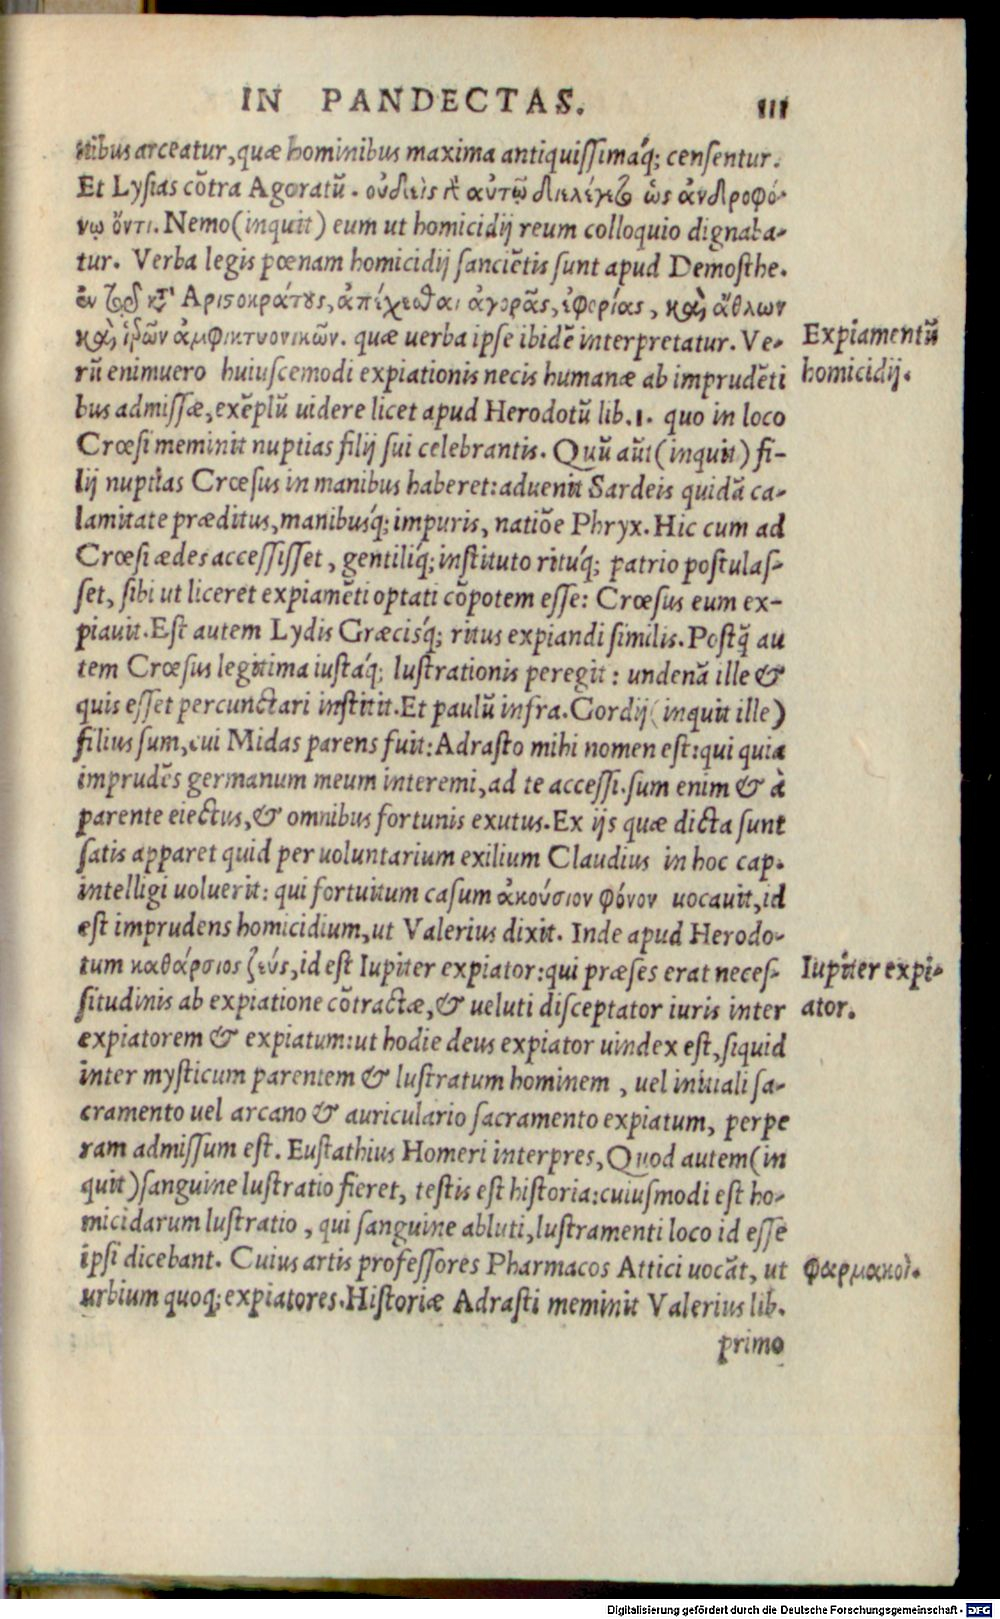 IN PANDECTAS. 111
nibus arceatur, quæ hominibus maxima antiquissimáq; censentur.
Et Lysias cõtra Agoratũ. οὐδεὶς αὐτῷ διελέγετο ὡς ἀνδροφό-
νῳ ὄντι. Nemo(inquit) eum ut homicidij reum colloquio dignaba-
tur. Verba legis pœnam homicidij sanciẽtis sunt apud Demosthe.
ἐν κατ' Αριστοκράτους, ἀπέχεσθαι ἀγορᾶς, ἐφορίας, καὶ ἄθλων
καὶ ἱερῶν ἀμφικτυονικῶν. quæ uerba ipse ibidẽ interpretatur. Ve-
Expiamentũ
rũ enimuero huiuscemodi expiationis necis humanæ ab imprudẽti
homicidij.
bus admissæ, exẽplũ uidere licet apud Herodotũ lib. 1. quo in loco
Crœsi meminit nuptias filij sui celebrantis. Quũ aũt(inquit) fi-
lij nuptias Crœsus in manibus haberet: aduenit Sardeis quidã ca-
lamitate præditus, manibusq́; impuris, natiõe Phryx. Hic cum ad
Crœsi ædes accessisset, gentiliq́; instituto rituq́; patrio postulas-
set, sibi ut liceret expiamẽti optati cõpotem esse: Crœsus eum ex-
piauit. Est autem Lydis Græcisq́; ritus expiandi similis. Postq̃ au
tem Crœsus legitima iustaq́; lustrationis peregit: undenã ille &
quis esset percunctari institit. Et paulũ infra. Gordij(inquit ille)
filius sum, cui Midas parens fuit: Adrasto mihi nomen est: qui quia
imprudẽs germanum meum interemi, ad te accessi. sum enim & à
parente eiectus, & omnibus fortunis exutus. Ex ijs quæ dicta sunt
satis apparet quid per uoluntarium exilium Claudius in hoc cap.
intelligi uoluerit: qui fortuitum casum ἀκούσιον φόνον uocauit, id
est imprudens homicidium, ut Valerius dixit. Inde apud Herodo-
tum καθάρσιος ζεύς, id est Iupiter expiator: qui præses erat neces-
Iupiter expi-
situdinis ab expiatione cõtractæ, & ueluti disceptator iuris inter
ator.
expiatorem & expiatum: ut hodie deus expiator uindex est, siquid
inter mysticum parentem & lustratum hominem, uel initiali sa-
cramento uel arcano & auriculario sacramento expiatum, perpe
ram admissum est. Eustathius Homeri interpres, Quod autem(in
quit)sanguine lustratio fieret, testis est historia: cuiusmodi est ho-
micidarum lustratio, qui sanguine abluti, lustramenti loco id esse
ipsi dicebant. Cuius artis professores Pharmacos Attici uocãt, ut
φαρμακοὶ.
urbium quoq; expiatores. Historiæ Adrasti meminit Valerius lib.
primo
Digitalisierung gefördert durch die Deutsche Forschungsgemeinschaft - DFG